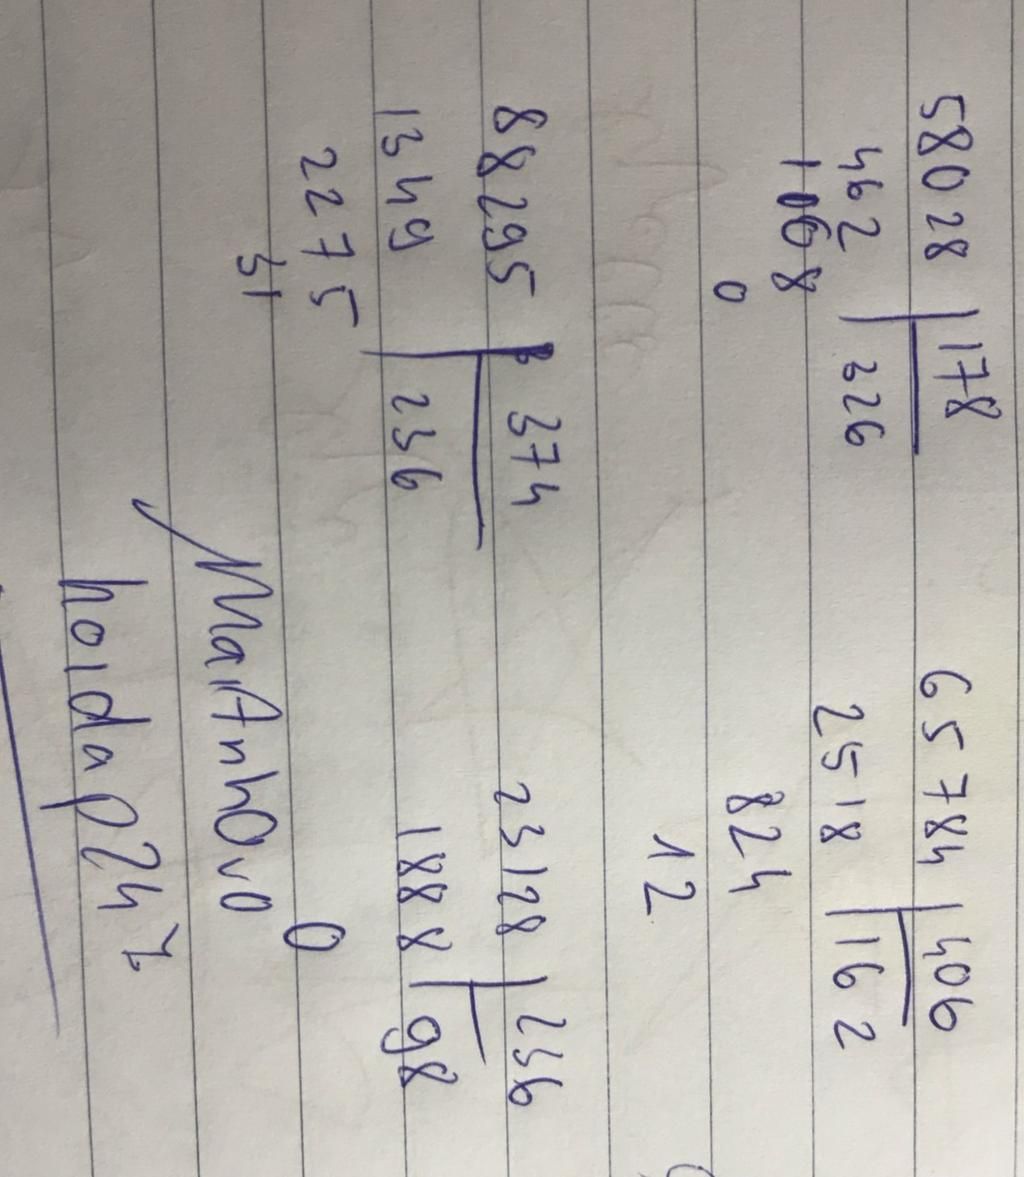 58028 178
462 326
1068
0
65784 406
2518 162
824
12
88295 374
1349 236
2275
31
23128 236
1888 98
0
MaiAnh0v0
hoidap247